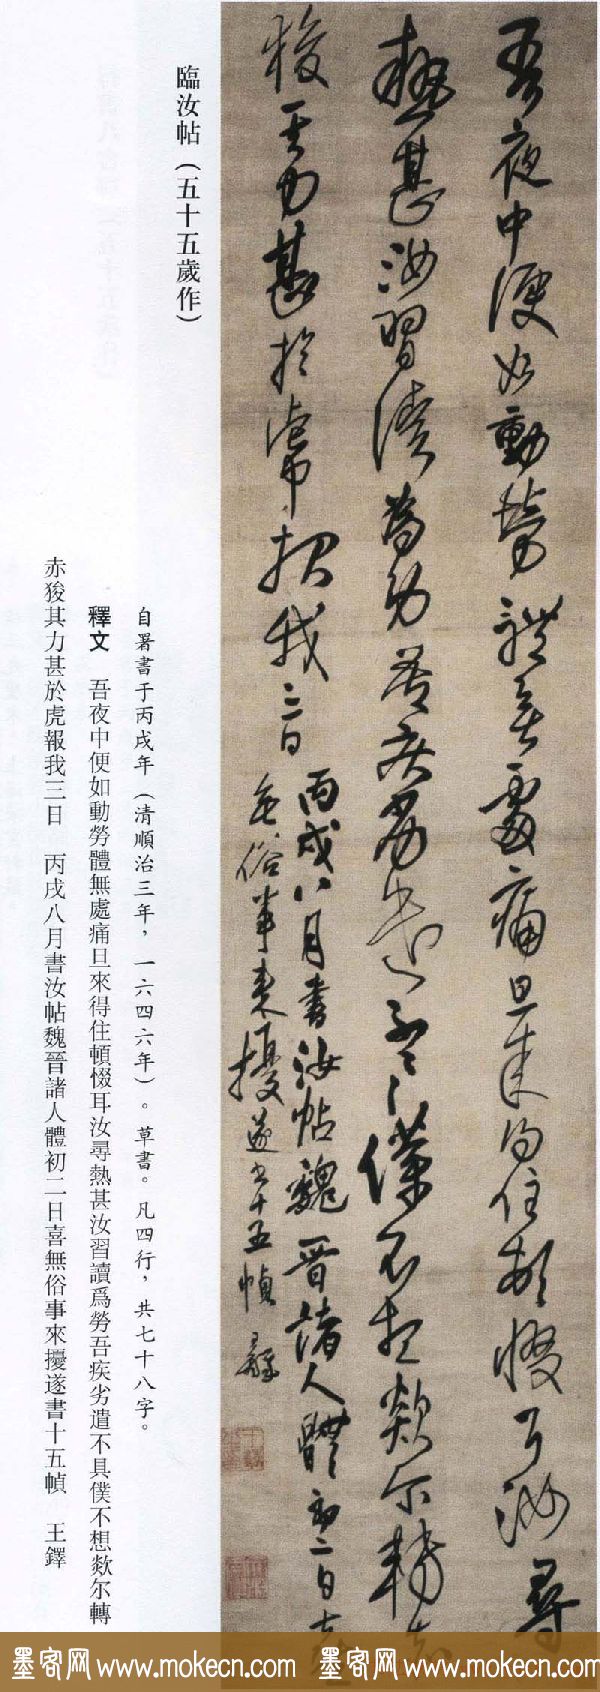 吾夜中便如動勞體無處痛旦來得住頓惙耳汝尋
熱甚汝習讀為勞吾疾劣遣不具僕不想欻尔轉赤
狻其力甚於虎報我三日 丙戌八月書汝帖魏晉諸人體初二日喜
無俗事來擾遂書十五幀 鐸
臨汝帖（五十五歲作）
自署書于丙戌年（清順治三年，一六四六年）。草書。凡四行，共七十八字。
釋文 吾夜中便如動勞體無處痛旦來得住頓惙耳汝尋熱甚汝習讀爲勞吾疾劣遣不具僕不想欻尔轉
赤狻其力甚於虎報我三日 丙戌八月書汝帖魏晉諸人體初二日喜無俗事來擾遂書十五幀 王鐸
墨客网 www.mokecn.com 墨客网 www.mokecn.com 墨客网 www.mokecn.com